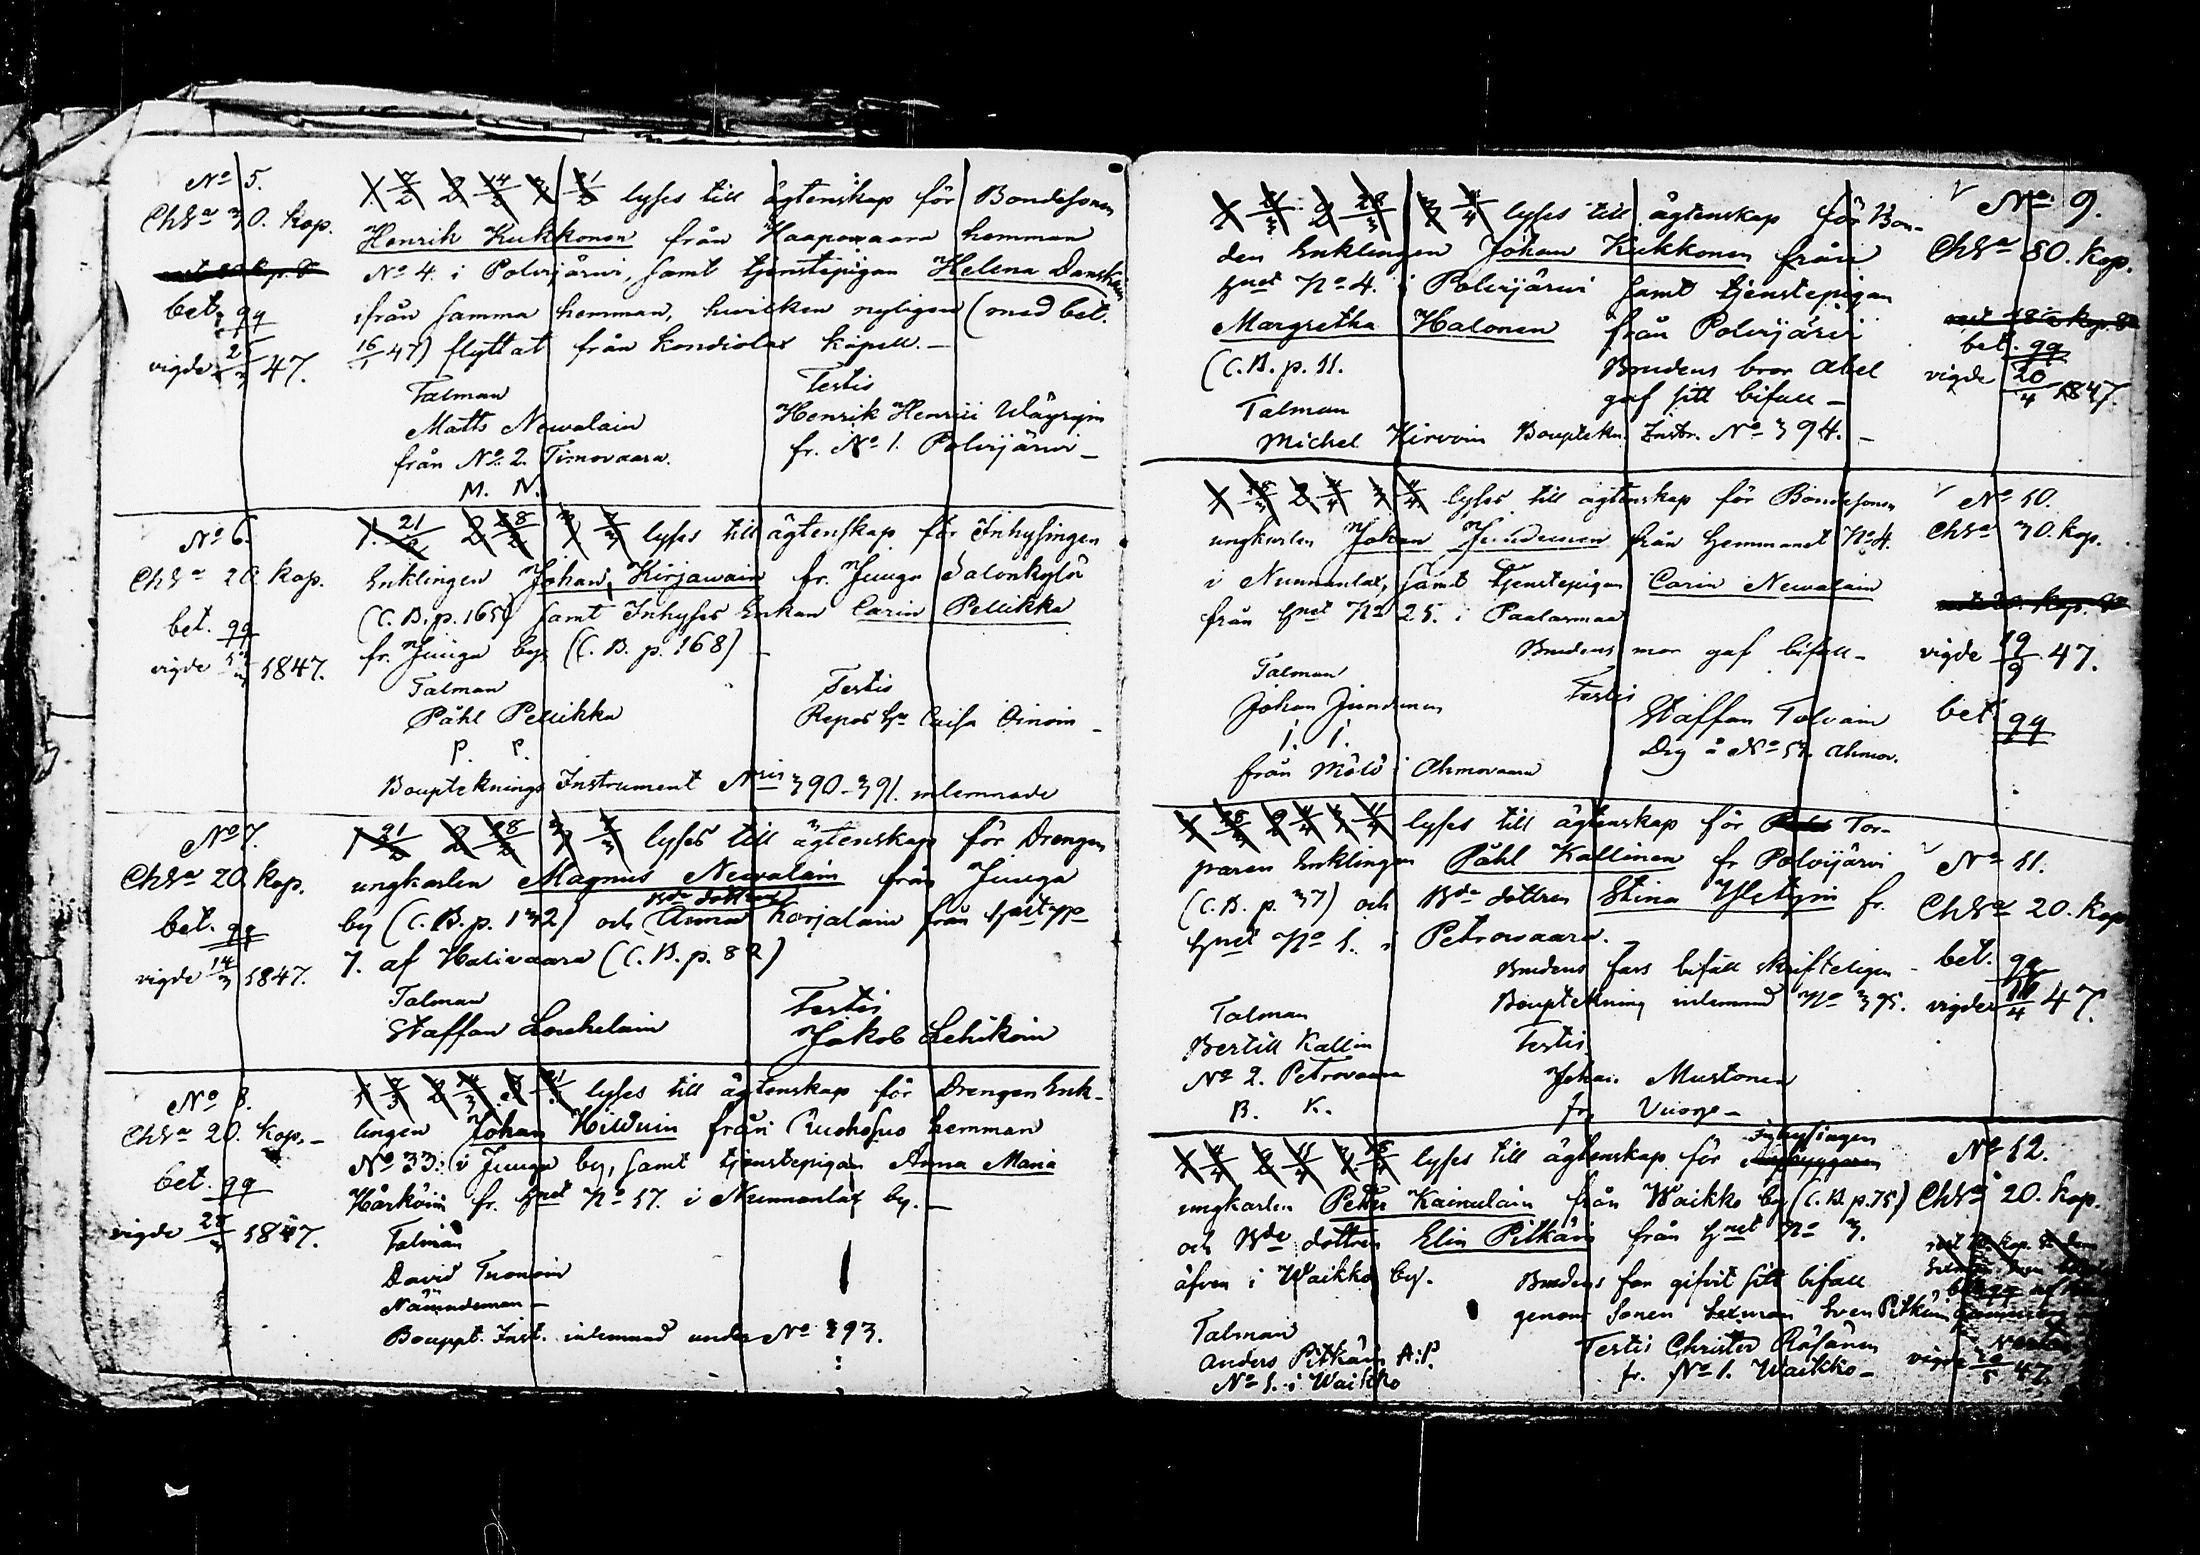 No 5.
Chsa 30. kop.
bet. qq
vigde 47.
1. 7/2 2 14/2 3 21/2 lyses till ägtenskap för Bondesonen
Henrik Kukkonen från Haapovaara hemman
No 4. i Polvijärvi, samt tjenstepigan Helena Danskan
ifrån samma hemman, hvilken nyligen (med bet.
16/1 47) flyttat från Kondiolax kapell. –
Talman
Matts Newalain
från No 2. Timovaara.
M. N.
Testis
Henrik Henrici Wäyrynin
fr. No 1. Polvijärvi –
No 6.
Chsa 20. kop.
bet. qq
vigde 1847.
1. 21/2 2 28/2 3 7/3 lyses till ägtenskap för Inhysingen
Enklingen Johan Kirjawain fr. Juuga Salonkylä
(C.B. p. 165) samt Inhyses Enkan Carin Pellikka
fr. Juuga by (C.B. p. 168) –
Talman
Påhl Pellikka
P. P.
Testis
Caisa Oinoin –
Bouptecknings Instrument Nris 390–391. inlemnade
No 7.
Chsa 20. kop.
bet. qq
vigde 14/3 1847.
1 21/2 2 28/2 3 7/3 lyses till ägtenskap för Drengen
ungkarlen Magnus Newalain från Juuga
Bde dottren
by (C.B. p. 132) och Anna Korjalain från No
7. af Halivaara (C.B. p. 82)
Talman
Staffan Louhelain
Testis
Jakob Lehikoin
No 8.
Chsa 20. kop. –
bet. qq
vigde 28/3 1847.
1 7/3 2 14/3 3 21/3 lyses till ägtenskap för Drengen Enk-
lingen Johan Hilduin från Ruohosuo hemman
No 33. i Juuga by, samt tjenstepigan Anna Maria
Härköin fr. hmet No 17. i Nunnanlax by. –
Talman
David Tuonoin
Nämndeman –
Bouppt. Inst. inlemnad under No 393.
No 9.
Chsa 80. kop.
bet. qq
vigde 20/4 1847.
1 21/3 2 28/3 3 4/4 lyses till ägtenskap för Bon-
den Enklingen Johan Kukkonen från
hmet No 4. i Polvijärvi samt tjenstepigan
Margretha Halonen från Polvijärvi
(C.B. p. 11.
Brudens bror Abel
gaf sitt bifall –
Talman
Michel Hirvoin Bouptekn. Instr. No 394. –
No 10.
Chsa 30. kop.
vigde 19/9 47.
bet qq
1 28/3 2 4/4 3 11/4 lyses till ägtenskap för Bondesonen
ungkarlen Johan Jundunen från hemmanet No 4.
i Nunnanlax, samt tjenstepigan Carin Newalain
från hmet No 25. i Paalasmaa
Brudens mor gaf bifall –
Talman
Johan Jundunen
I. I.
från Mölö i Ahmovaara
Testis
Staffan Tolvain
Drg å No 17. Ahmov.
No 11.
Chsa 20. kop
bet. qq
vigde 11/4 47.
1 28/3 2 4/4 3 11/4 lyses till ägtenskap för Tor-
paren Enklingen Påhl Kallinen fr Polvijärvi
(C.B. p. 37) och Bde dottren Stina fr.
hmet No 1. i Petrovaara.
Brudens fars bifall skrifteligen –
Bouptekning inlemnad No 395.
Talman
Bertill Kallin
No 2. Petrovaara
B. K.
Testis
Johan Mustonen
fr. Vuorge –
No 12.
Chsa 20. kop.
vigde 47.
1 4/4 2 11/4 3 18/4 lyses till ägtenskap för Inhysingen
ungkarlen Petter Kainulain från Waikko by (C.B. p. 75)
och Bde dottren Elin Pitkäin från hmet No 3.
äfven i Waikko by.
Brudens far gifvit sitt bifall
genom Sonen Sexman Sven Pitkäin
Talman
Anders Pitkäin A.P.
No 1. i Waikko
Testis Christer Räsänen
fr. No 1. Waikko –